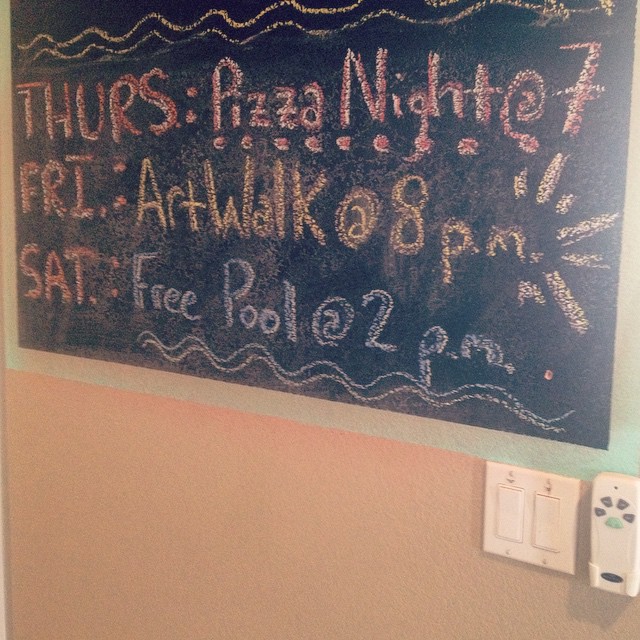 THURS: Pizza Night @ 7
FRI.: ArtWalk @ 8 p.m.
SAT.: Free Pool @ 2 p.m.